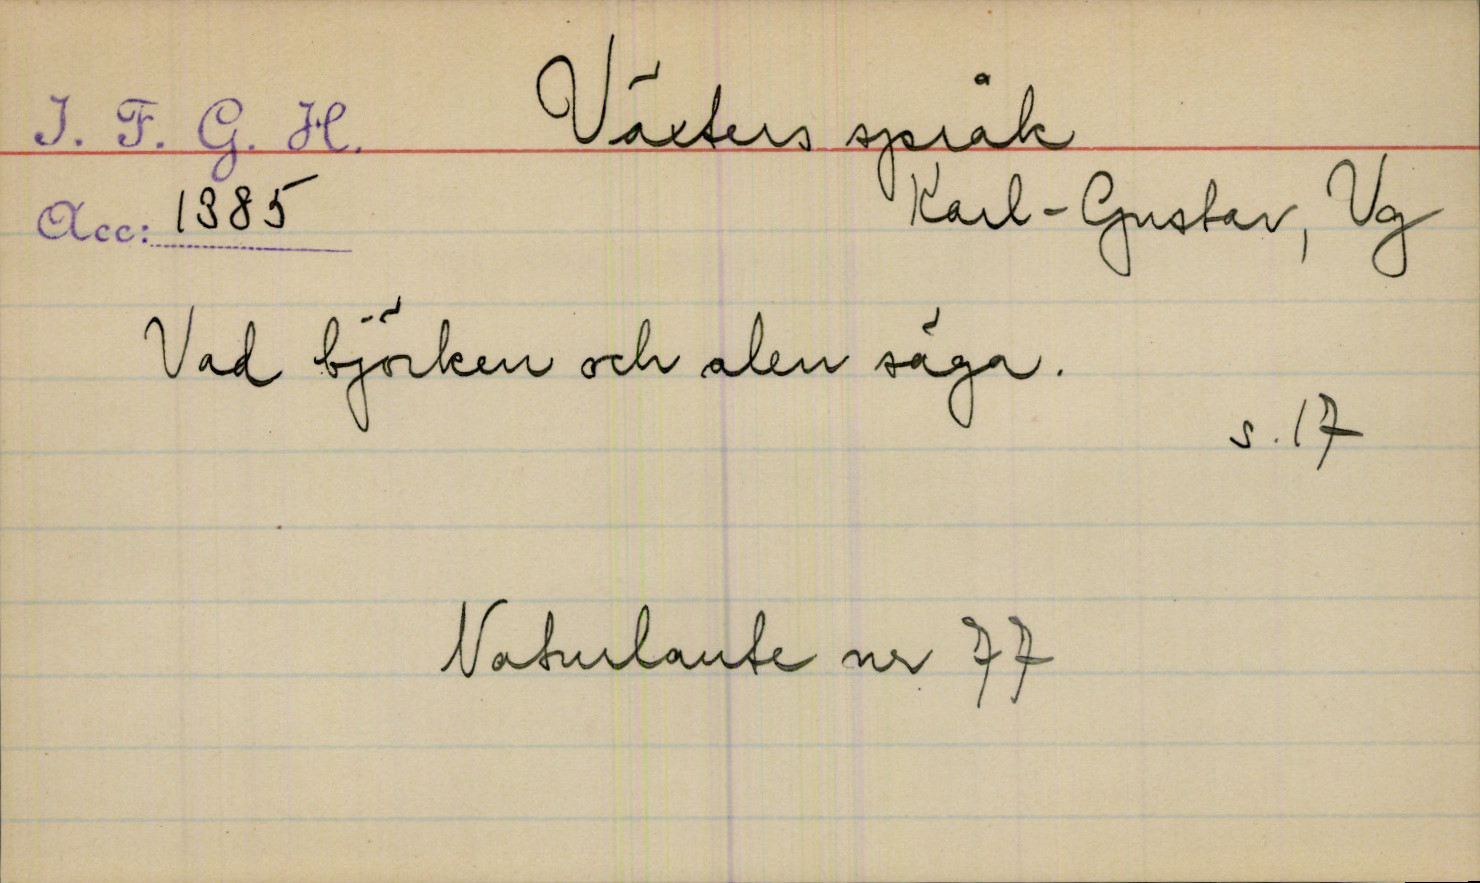 I. F. G. H.
Växters språk
Acc: 1385
Karl-Gustav, Vg
Vad björken och alen säga.
s. 17
Naturlaute nr 77